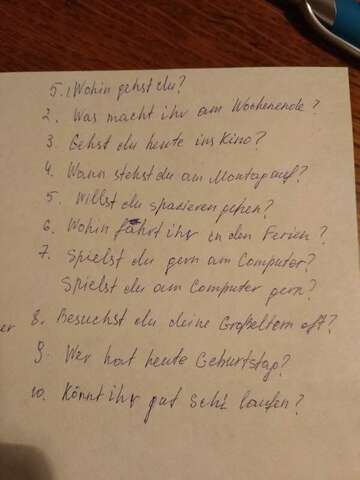 5. 1 Wohin gehst du?
2. Was macht ihr am Wochenende?
3. Gehst du heute ins Kino?
4. Wann stehst du am Montag auf?
5. Willst du spazieren gehen?
6. Wohin fahrt ihr in den Ferien?
7. Spielst du gern am Computer?
Spielst du am Computer gern?
er 8. Besuchst du deine Großeltern oft?
9. Wer hat heute Geburtstag?
10. Könnt ihr gut Schi laufen?